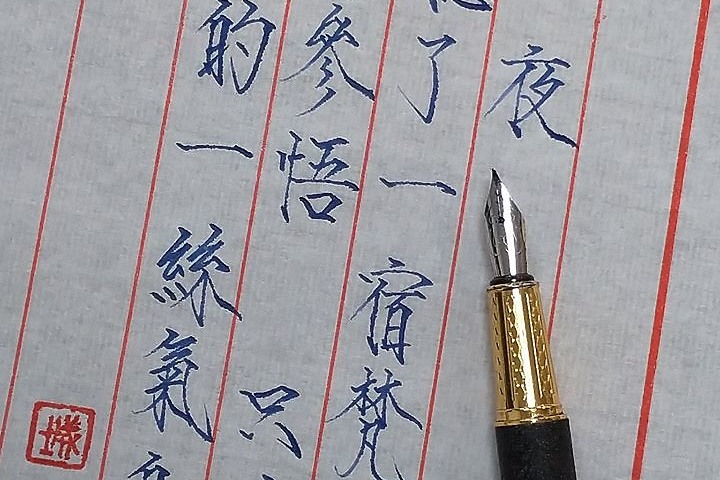 夜
了一宿梵
參悟 只
的一絲氣